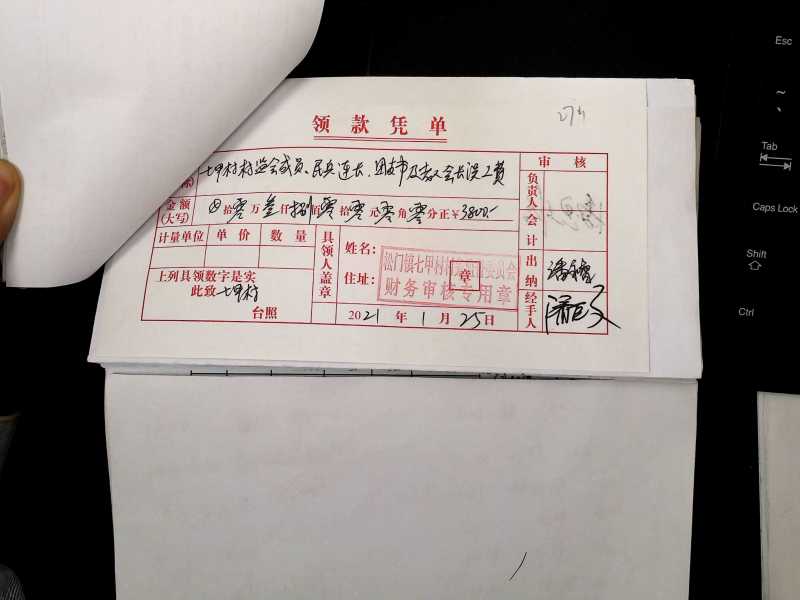 274
领款凭单
七甲村村监会成员、民兵连长、团支书及老人会长误工费
审核
金额(大写) ⊗拾零万叁仟捌佰零拾零元零角零分正¥3800.-
计量单位 单价 数量
具领人盖章
姓名:
住址:
松门镇七甲村村
委员会
财务审核专用章
章
上列具领数字是实
此致 七甲村
台照
2021年1月25日
负责人
会计
出纳
经手人
Esc
~
、
Tab
Caps Lock
Shift
Ctrl